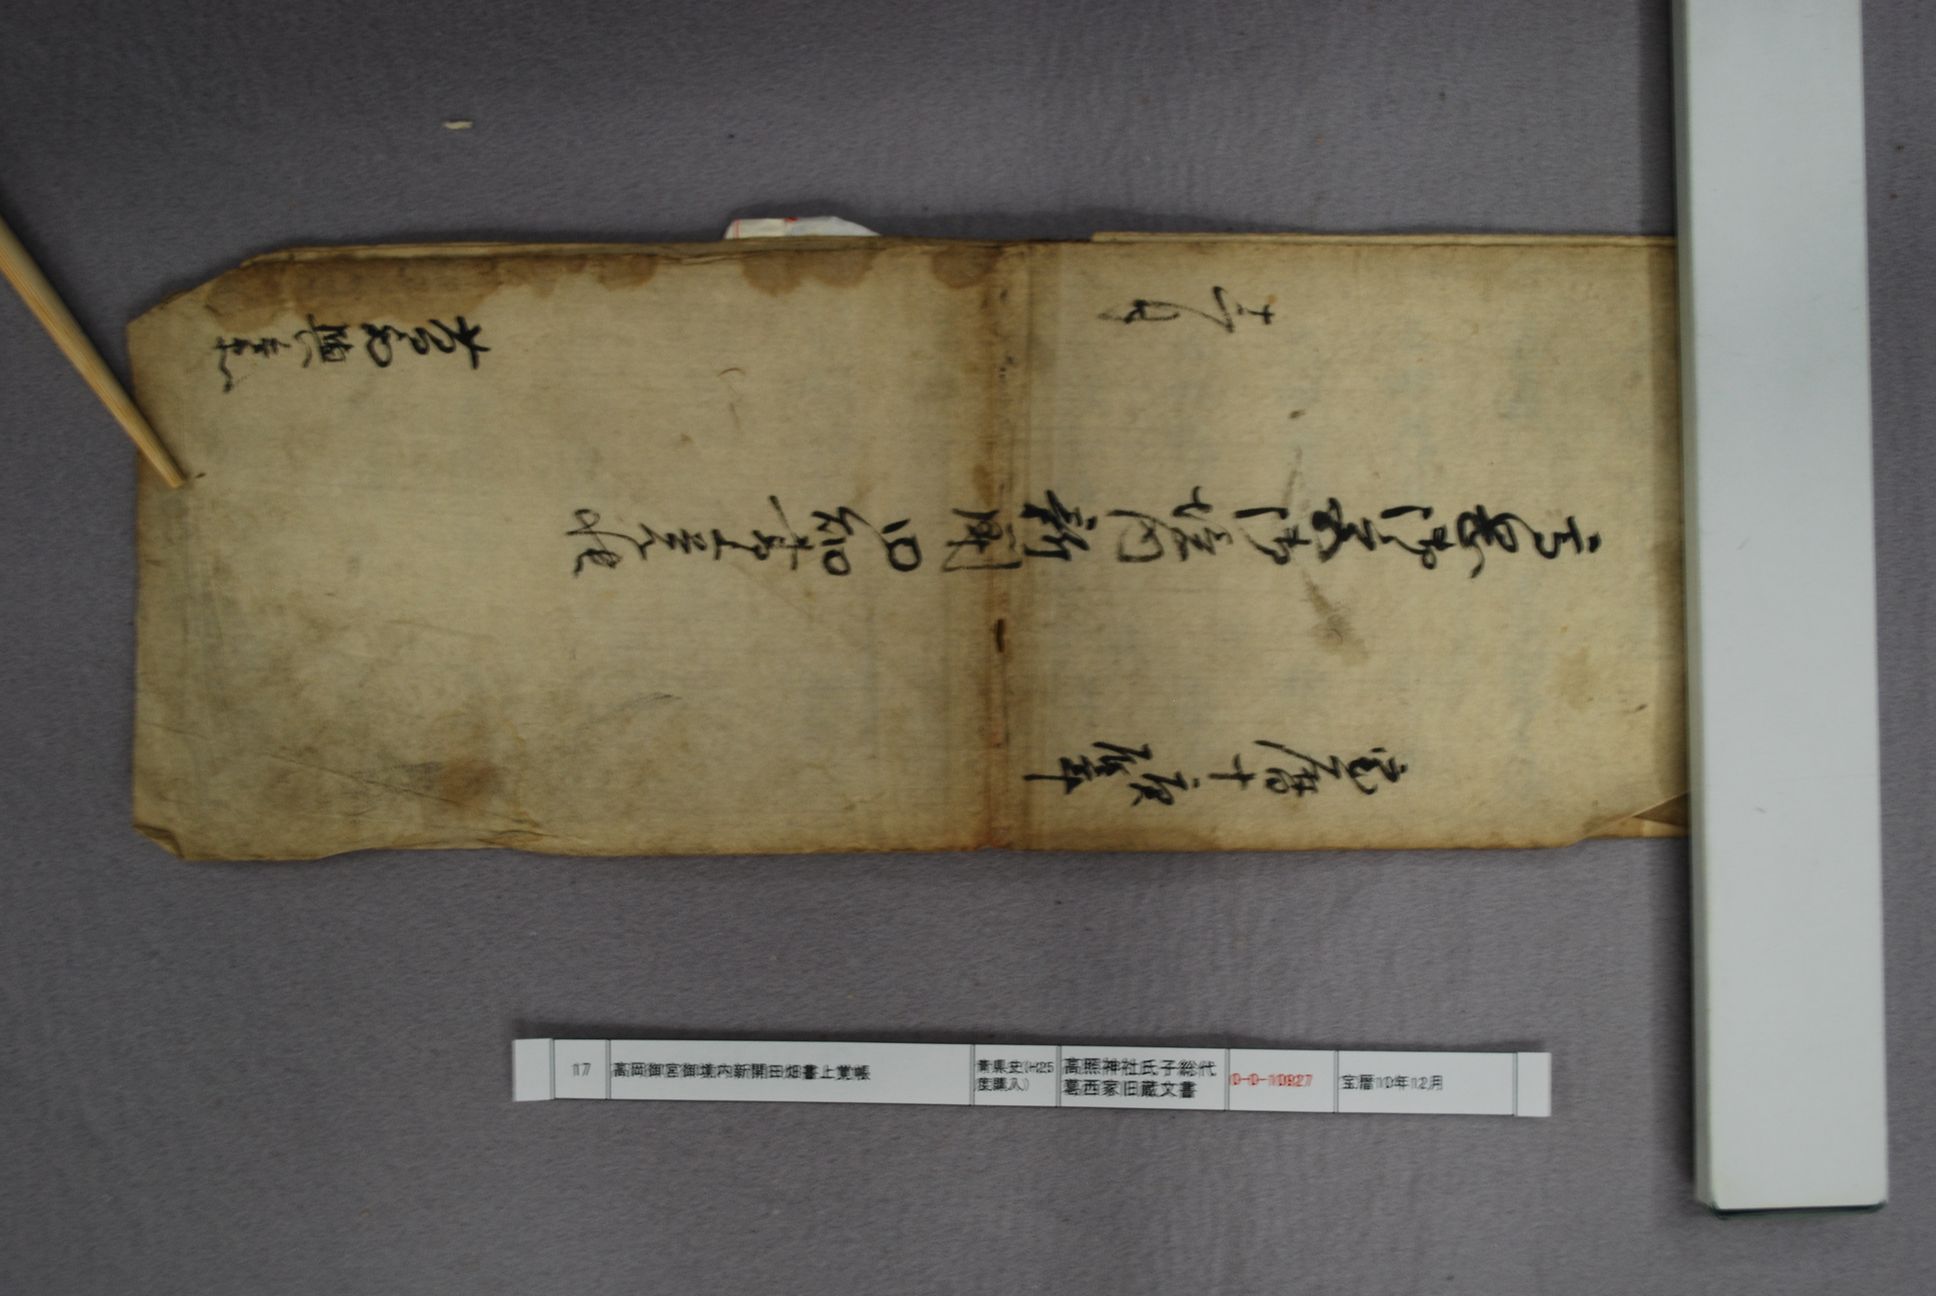 宝暦十庚辰年
高岡御宮御境内新開田畑書上覚帳
十二月
17 高岡御宮御境内新開田畑書上覚帳 青県史(H25度購入) 高照神社氏子総代葛西家旧蔵文書 D-D-10827 宝暦10年12月